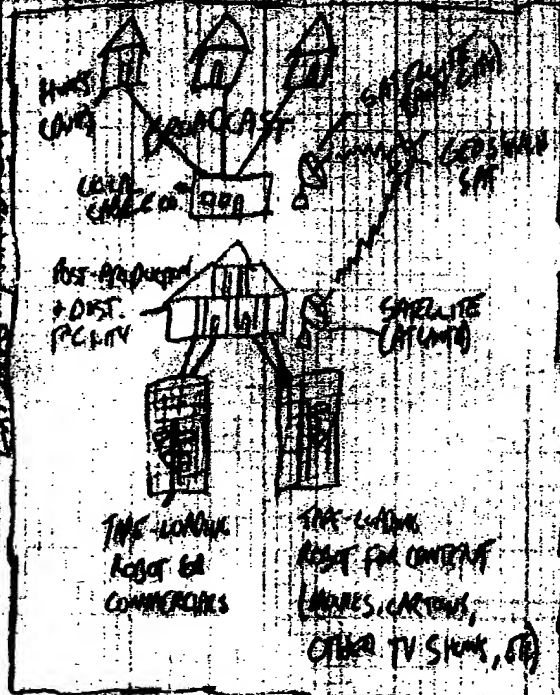 SATELLITE
(ANY CITY)
HOMES
BROADCAST
GEOSYNCH
SAT
LOCAL
CABLE CO.
POST-PRODUCTION
+ DIST.
FACILITY
SATELLITE
(ATLANTA)
TAPE-LOADING
ROBOT FOR
COMMERCIALS
TAPE-LOADING
ROBOT FOR CONTENT
(MOVIES, CARTOONS,
OTHER TV SHOWS, ETC)